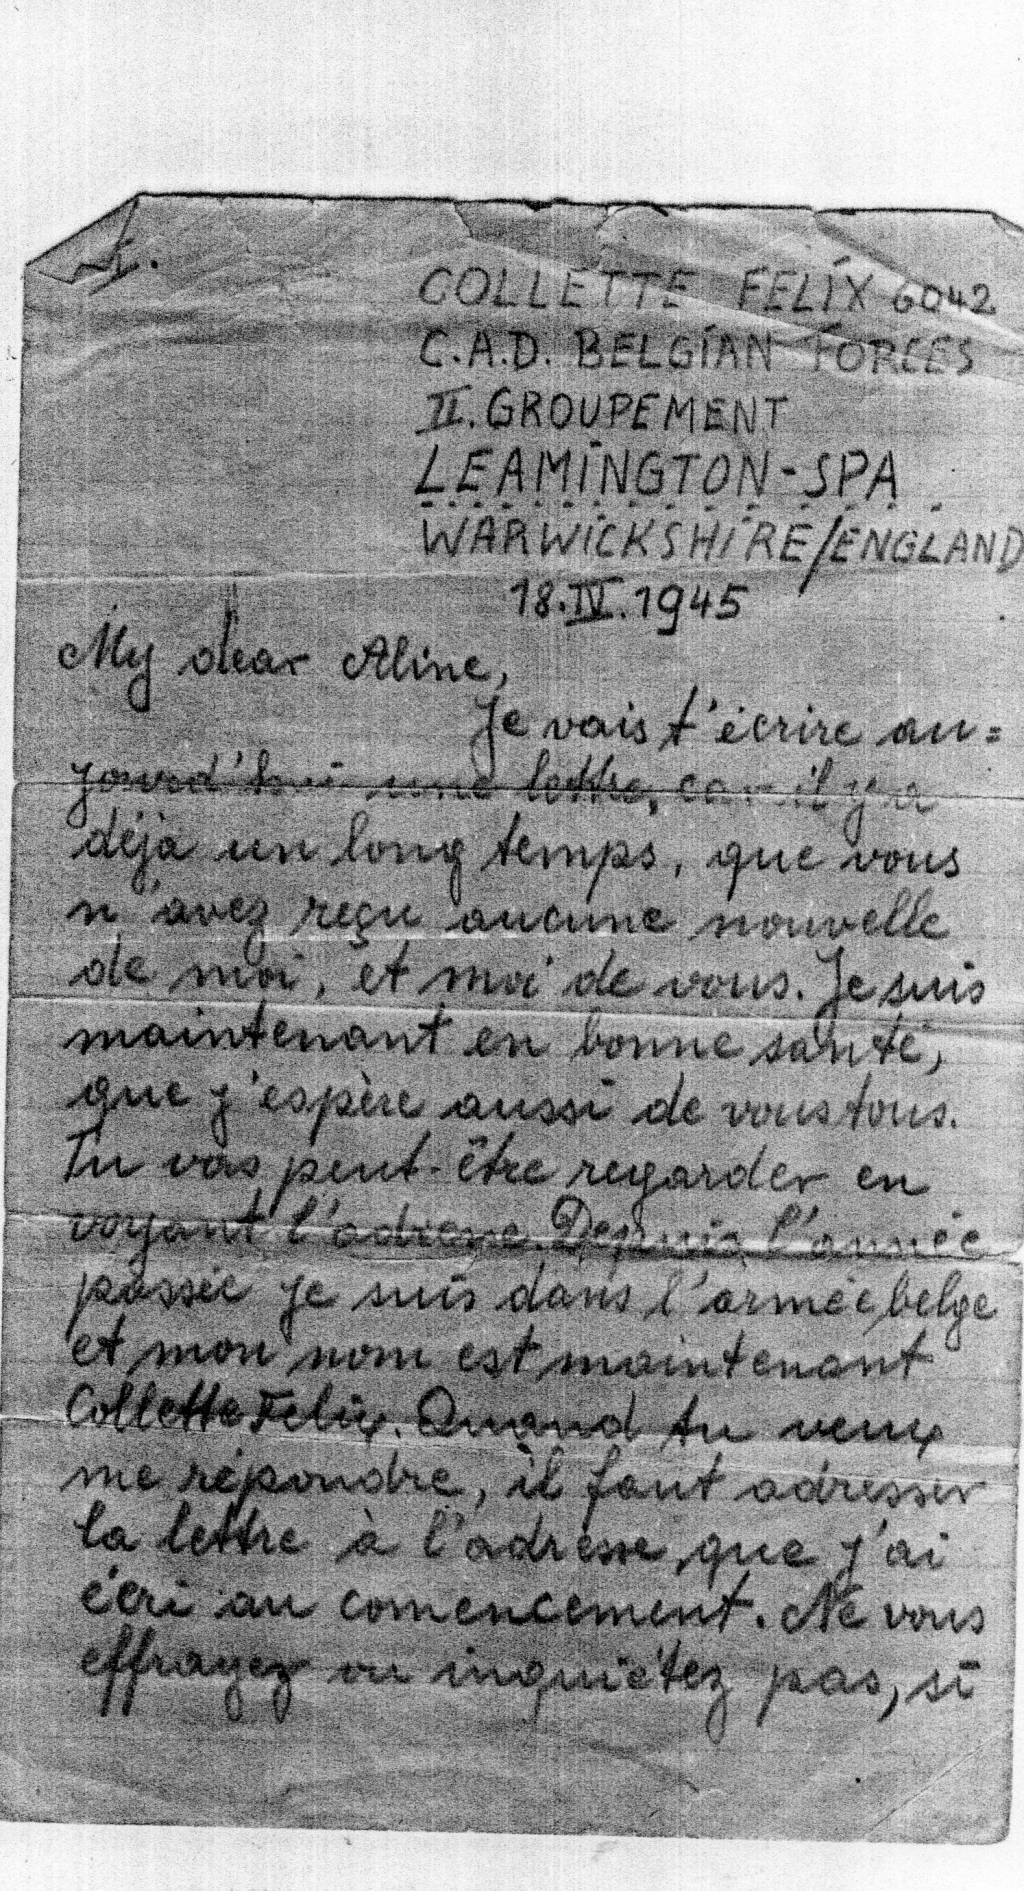 I.
COLLETTE FELIX 6042
C.A.D. BELGIAN FORCES
II. GROUPEMENT
LEAMINGTON-SPA
WARWICKSHIRE/ENGLAND
18.IV.1945
My dear Aline,
Je vais t'écrire au=
jourd'hui une lettre, car il y a
déja un long temps, que vous
n'avez reçu aucune nouvelle
de moi, et moi de vous. Je suis
maintenant en bonne santé,
que j'espère aussi de vous tous.
Tu vas peut-être regarder en
voyant l'adresse. Depuis l'année
passée je suis dans l'armée belge
et mon nom est maintenant
Collette Felix. Quand tu veux
me répondre, il faut adresser
la lettre à l'adresse, que j'ai
écri au comencement. Ne vous
effrayez ou inquiétez pas, si